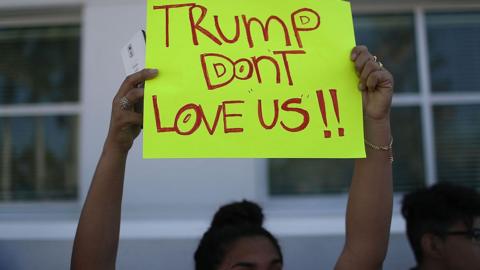 TRUMP
DONT
LOVE US!!